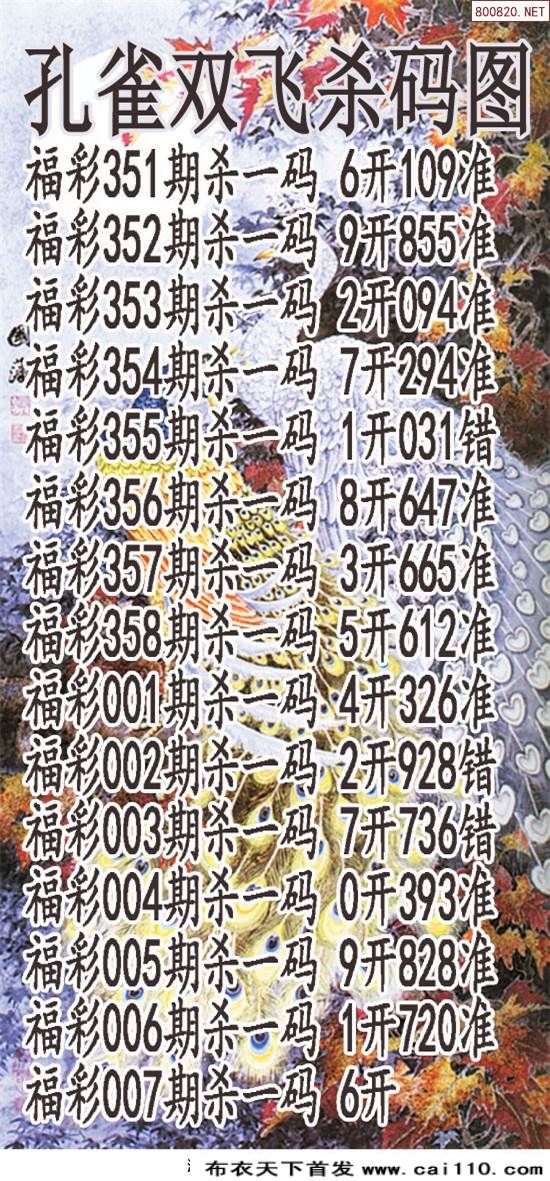 800820.NET
孔雀双飞杀码图
福彩351期杀一码 6开109准
福彩352期杀一码 9开855准
福彩353期杀一码 2开094准
福彩354期杀一码 7开294准
福彩355期杀一码 1开031错
福彩356期杀一码 8开647准
福彩357期杀一码 3开665准
福彩358期杀一码 5开612准
福彩001期杀一码 4开326准
福彩002期杀一码 2开928错
福彩003期杀一码 7开736错
福彩004期杀一码 0开393准
福彩005期杀一码 9开828准
福彩006期杀一码 1开720准
福彩007期杀一码 6开
布衣天下首发 www.cai110.com